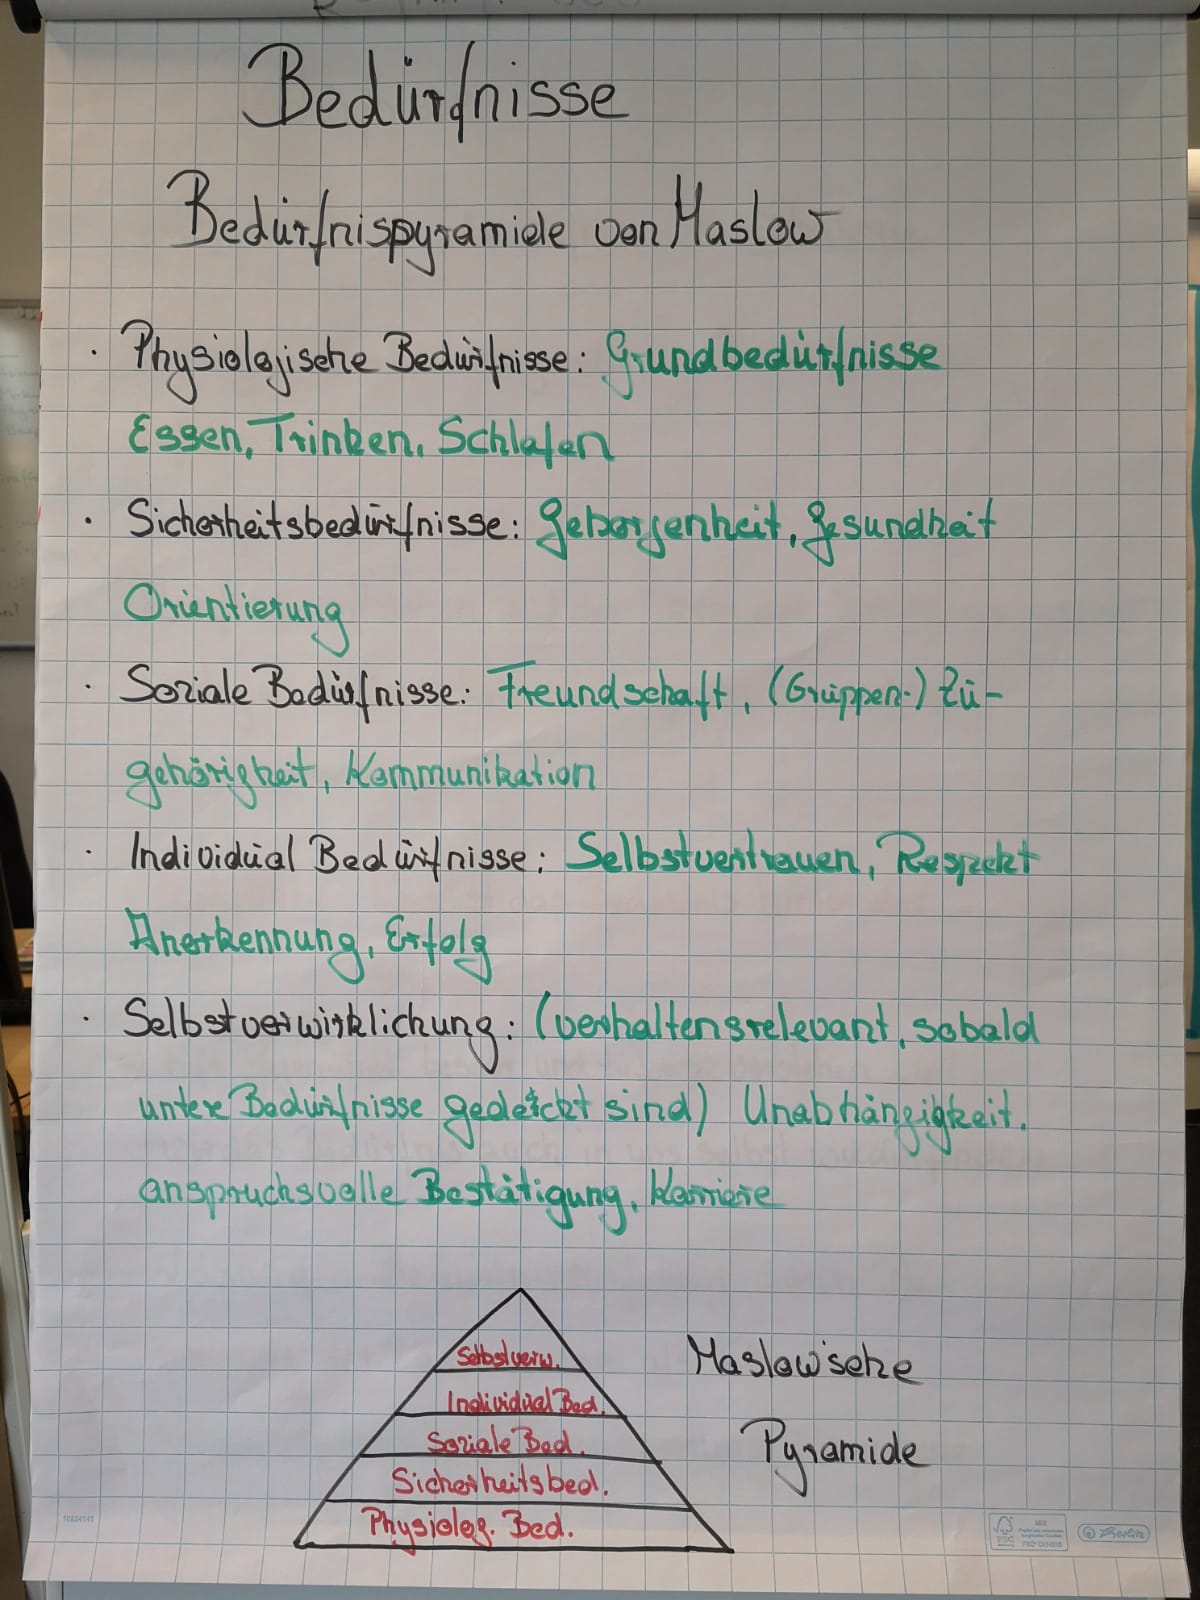 Bedürfnisse
Bedürfnispyramide von Maslow
· Physiologische Bedürfnisse: Grundbedürfnisse
Essen, Trinken, Schlafen
· Sicherheitsbedürfnisse: Geborgenheit, Gesundheit
Orientierung
· Soziale Bedürfnisse: Freundschaft, (Gruppen-) Zu-
gehörigkeit, Kommunikation
· Individual Bedürfnisse: Selbstvertrauen, Respekt
Anerkennung, Erfolg
· Selbstverwirklichung: (verhaltensrelevant, sobald
untere Bedürfnisse gedeckt sind) Unabhängigkeit,
anspruchsvolle Bestätigung, Karriere
Selbstverw.
Individual Bed.
Soziale Bed.
Sicherheitsbed.
Physiolog. Bed.
Maslow'sche
Pyramide
10834141
FSC
MIX